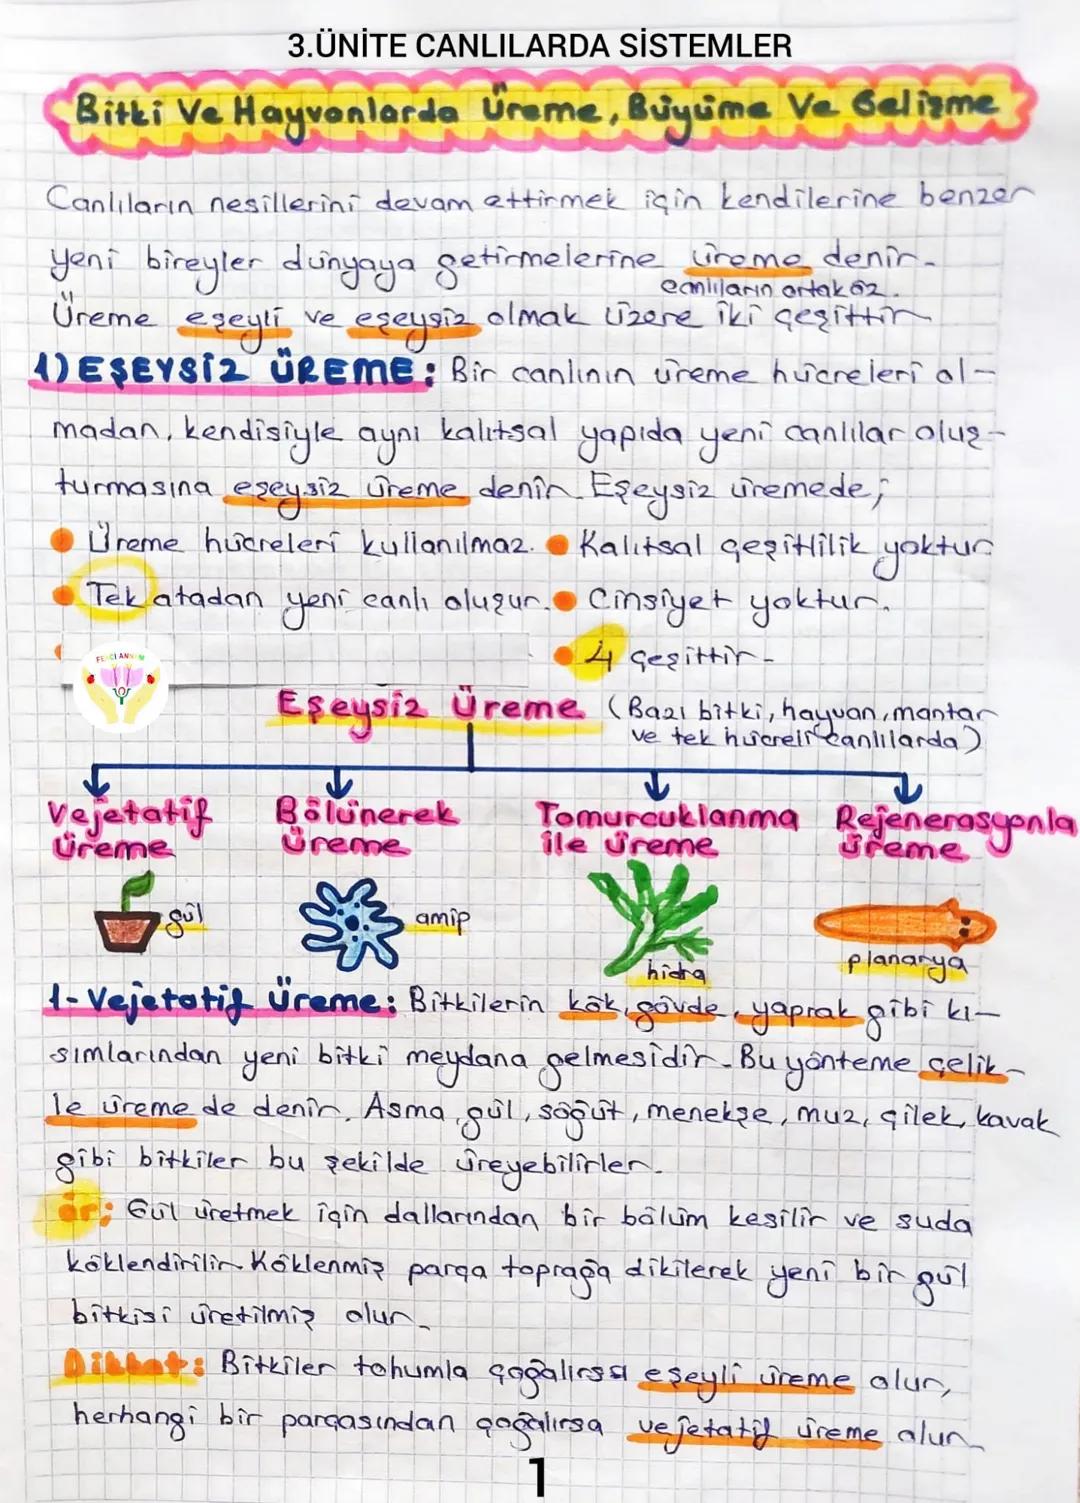 3.ÜNİTE CANLILARDA SİSTEMLER
Bitki Ve Hayvanlarda Üreme, Büyüme Ve Gelişme
Canlıların nesillerini devam ettirmek için kendilerine benzer
yeni bireyler dünyaya getirmelerine üreme denir.
canlıların ortak öz.
Üreme eşeyli ve eşeysiz olmak üzere iki çeşittir
1) EŞEYSİZ ÜREME: Bir canlının üreme hücreleri ol-
madan, kendisiyle aynı kalıtsal yapıda yeni canlılar oluş-
turmasına eşeysiz üreme denir. Eşeysiz üremede;
Üreme hücreleri kullanılmaz. Kalıtsal çeşitlilik yoktur
Tek atadan yeni canlı oluşur. Cinsiyet yoktur.
FENCİ ANNEM
4 çeşittir-
Eşeysiz Üreme (Bazı bitki, hayvan, mantar
ve tek hücreli canlılarda)
Vejetatif Bölünerek Tomurcuklanma Rejenerasyonla
üreme üreme ile üreme üreme
gül amip hidra planarya
1- Vejetatif Üreme: Bitkilerin kök, gövde, yaprak gibi kı-
sımlarından yeni bitki meydana gelmesidir. Bu yönteme çelik-
le üreme de denir. Asma, gül, söğüt, menekşe, muz, çilek, kavak
gibi bitkiler bu şekilde üreyebilirler.
ör: Gül üretmek için dallarından bir bölüm kesilir ve suda
köklendirilir. Köklenmiş parça toprağa dikilerek yeni bir gül
bitkisi üretilmiş olur.
Dikkat: Bitkiler tohumla çoğalırsa eşeyli üreme olur,
herhangi bir parçasından çoğalırsa vejetatif üreme olur
1